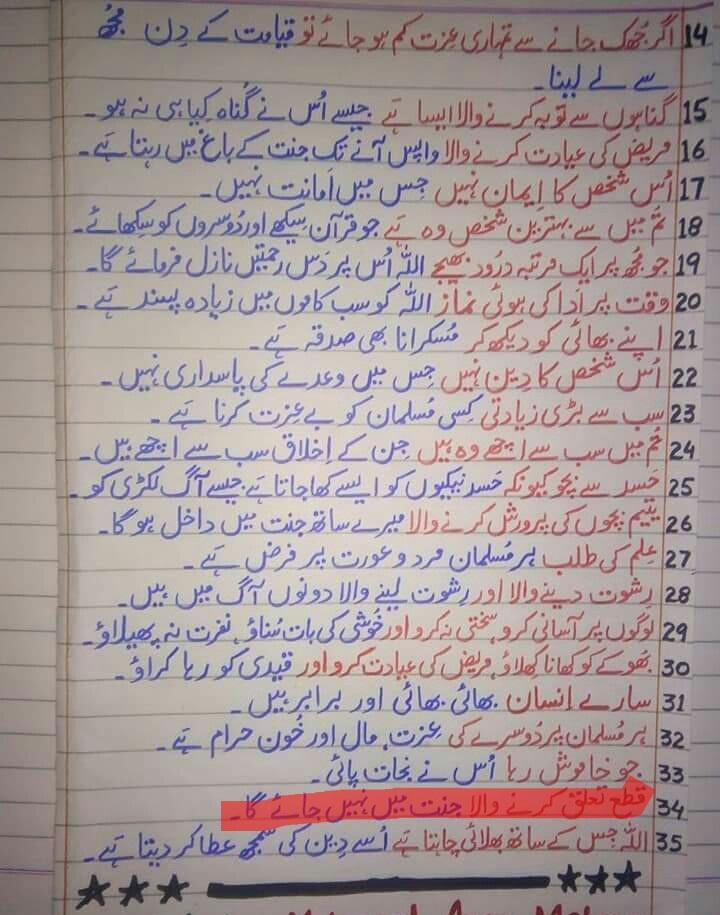 14 اگر جُھک جانے سے تمہاری عِزت کم ہو جائے تو قیامت کے دِن مُجھ
سے لے لینا۔
15 گناہوں سے توبہ کرنے والا ایسا ہے جیسے اُس نے گُناہ کیا ہی نہ ہو۔
16 مریض کی عیادت کرنے والا واپس آنے تک جنت کے باغ میں رہتا ہے۔
17 اُس شخص کا اِیمان نہیں جِس میں اَمانت نہیں۔
18 تُم میں سے بہترین شخص وہ ہے جو قرآن سیکھے اور دُوسروں کو سِکھائے۔
19 جو مُجھ پر ایک مرتبہ درُود بھیجے اللہ اُس پر دَس رحمتیں نازل فرمائے گا۔
20 وقت پر اَدا کی ہوئی نماز اللہ کو سب کاموں میں زیادہ پسند ہے۔
21 اپنے بھائی کو دیکھ کر مُسکرانا بھی صدقہ ہے۔
22 اُس شخص کا دِین نہیں جِس میں وعدے کی پاسداری نہیں۔
23 سب سے بڑی زیادتی کِسی مُسلمان کو بے عِزت کرنا ہے۔
24 تُم میں سب سے اچھے وہ ہیں جِن کے اِخلاق سب سے اچھے ہیں۔
25 حَسد سے بچو کیونکہ حَسد نیکیوں کو ایسے کھا جاتا ہے جیسے آگ لکڑی کو۔
26 یتیم بچوں کی پرورش کرنے والا میرے ساتھ جنت میں داخل ہو گا۔
27 عِلم کی طلب ہر مُسلمان مرد و عورت پر فرض ہے۔
28 رِشوت دینے والا اور رِشوت لینے والا دونوں آگ میں ہیں۔
29 لوگوں پر آسانی کرو، سختی نہ کرو اور خُوشی کی بات سُناؤ، نفرت نہ پھیلاؤ۔
30 بھُوکے کو کھانا کھِلاؤ، مریض کی عیادت کرو اور قیدی کو رہا کراؤ۔
31 سارے اِنسان بھائی بھائی اور برابر ہیں۔
32 ہر مُسلمان پر دُوسرے کی عِزت، مال اور خُون حرام ہے۔
33 جو خاموش رہا اُس نے نجات پائی۔
34 قطع تعلق کرنے والا جنت میں نہیں جائے گا۔
35 اللہ جِس کے ساتھ بھلائی چاہتا ہے اُسے دِین کی سمجھ عطا کر دیتا ہے۔